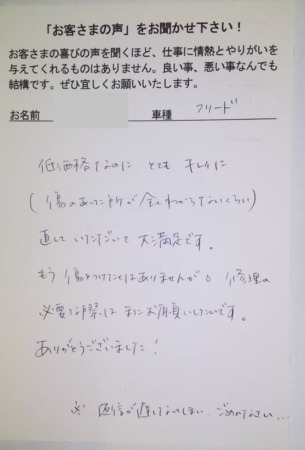 「お客さまの声」をお聞かせ下さい！
お客さまの喜びの声を聞くほど、仕事に情熱とやりがいを
与えてくれるものはありません。良い事、悪い事なんでも
結構です。ぜひ宜しくお願いいたします。
お名前 車種 フリード
低価格なのに とても キレイに
(傷のあった所が全くわからないくらい)
直していただいて大満足です。
もう傷をつけたくはありませんが。修理の
必要な際はまたお願いしたいです。
ありがとうございました！
※ 返信が遅くなってしまい、ごめんなさい…